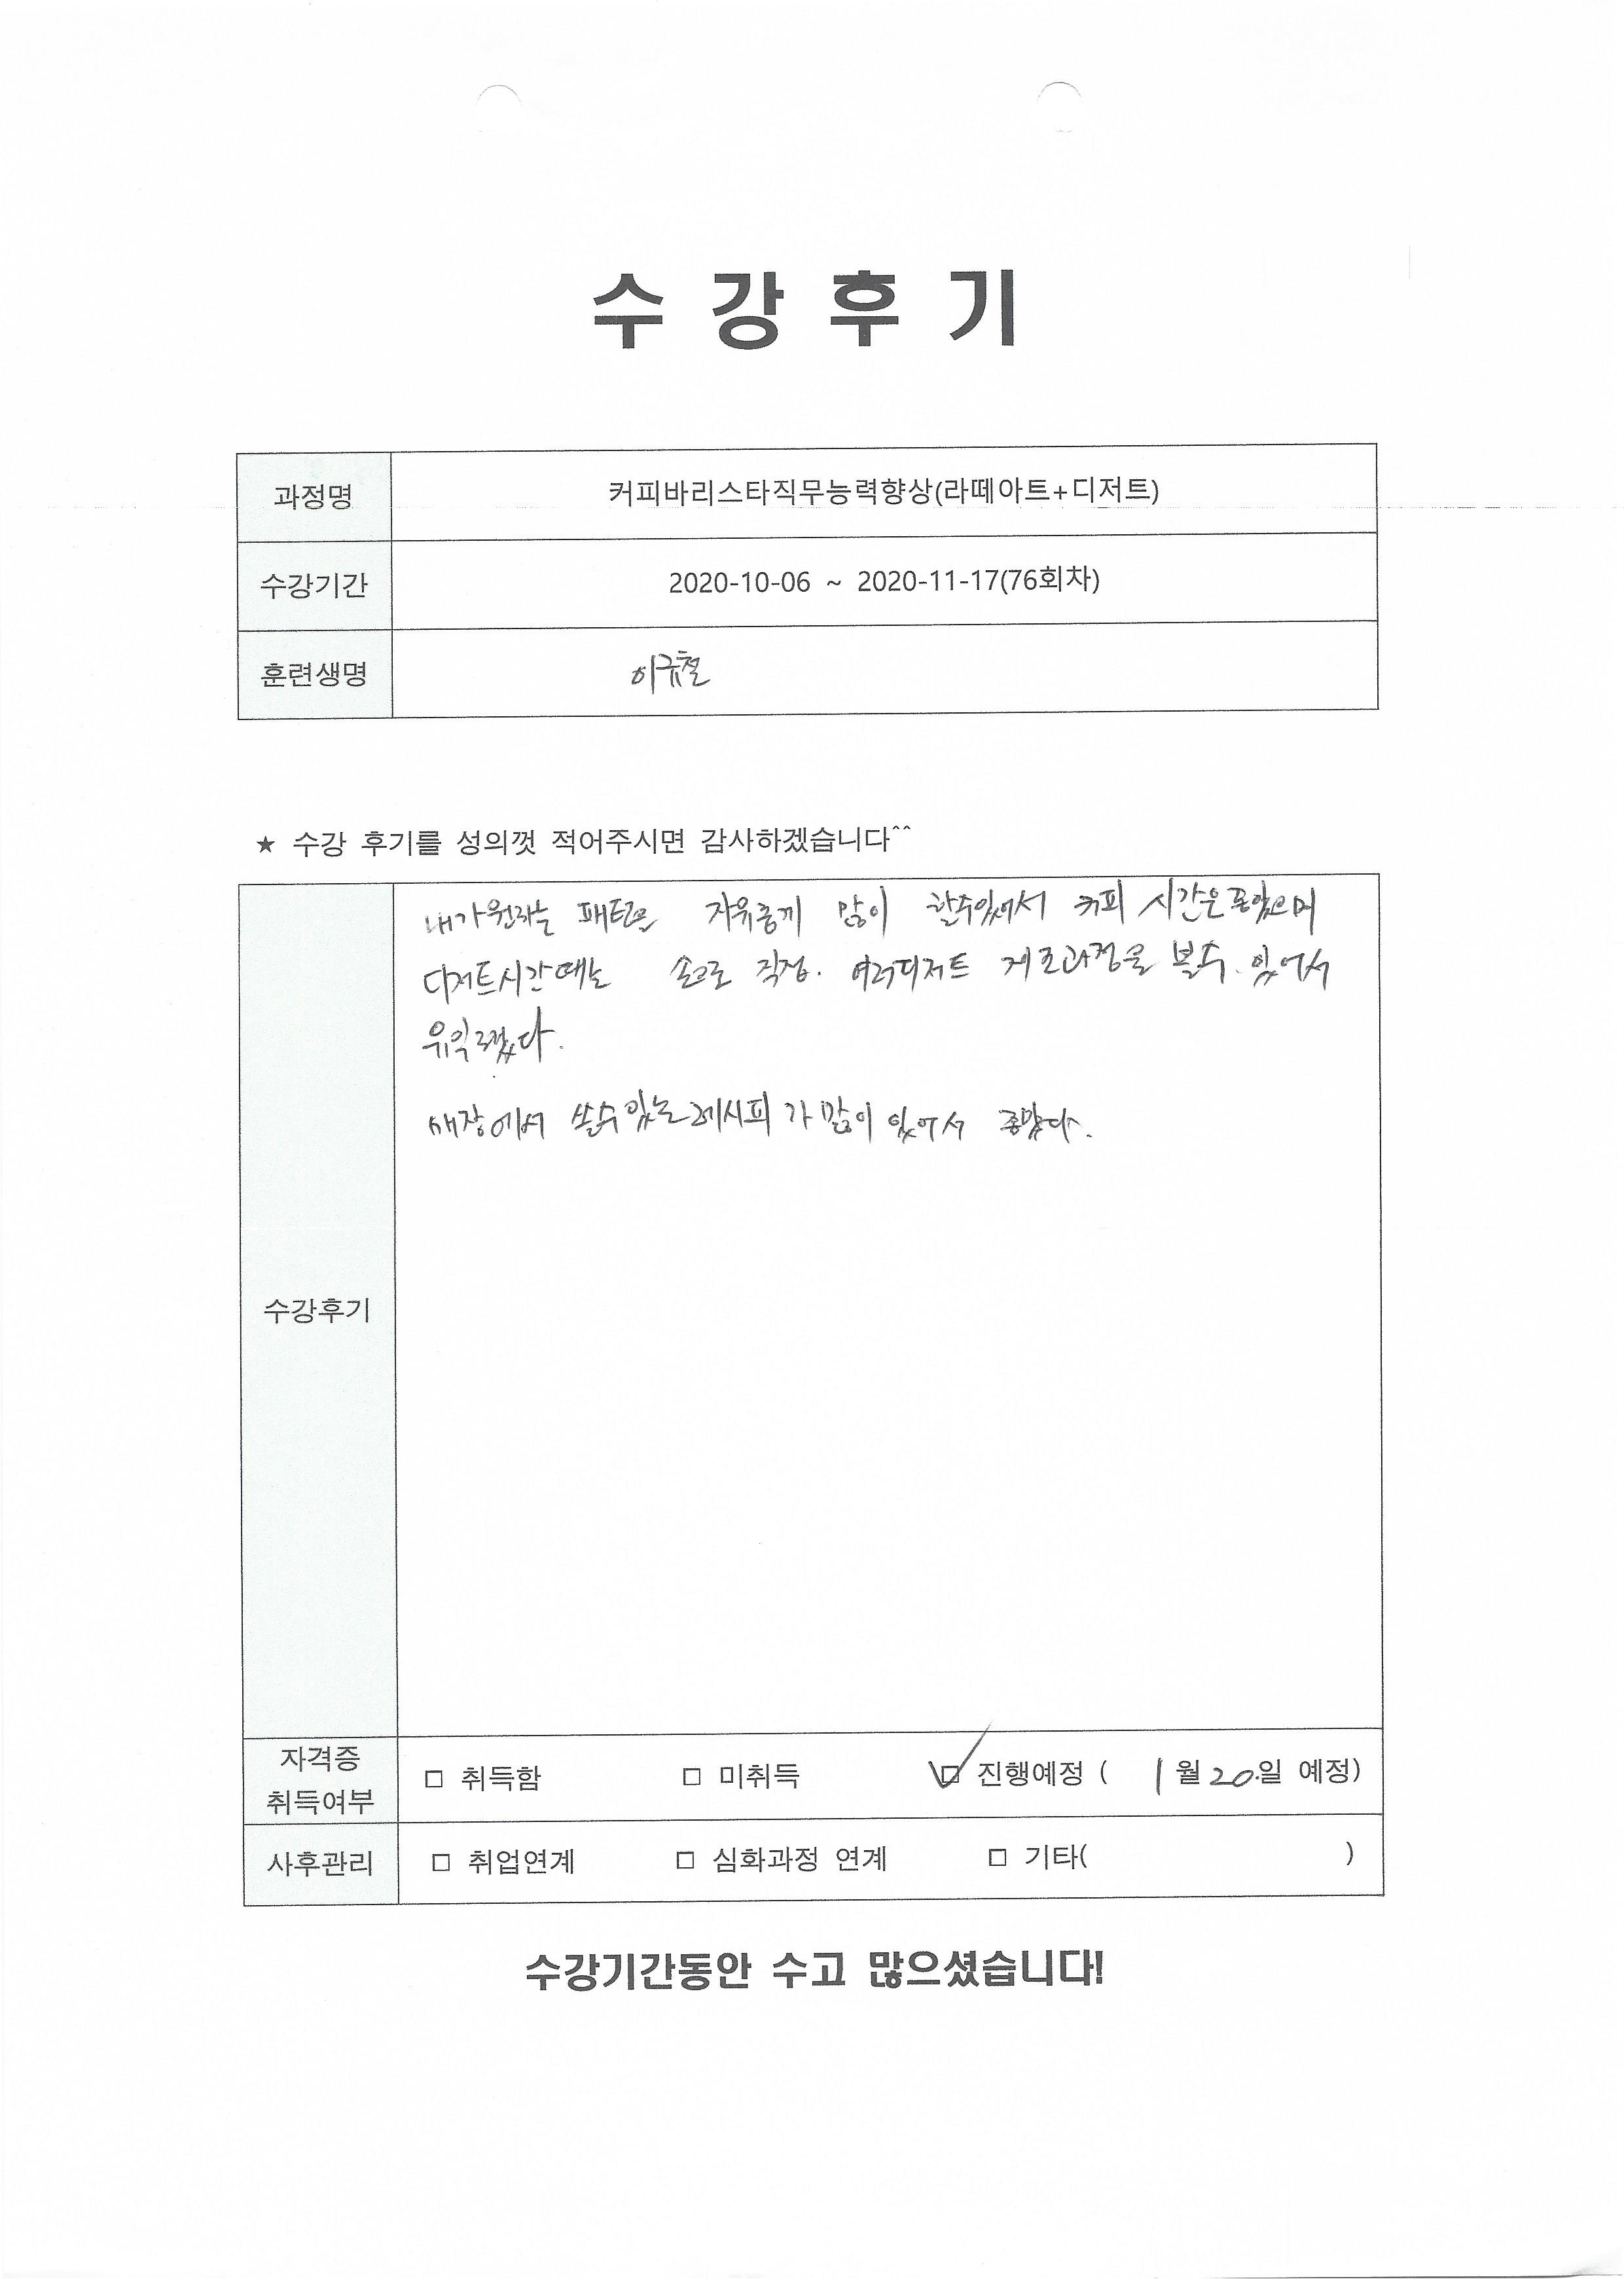 수 강 후 기
과정명 커피바리스타직무능력향상(라떼아트+디저트)
수강기간 2020-10-06 ~ 2020-11-17(76회차)
훈련생명 이규철
★ 수강 후기를 성의껏 적어주시면 감사하겠습니다^^
내가원하는 패턴을 자유롭게 많이 할수있어서 커피 시간은좋았으며
디저트시간때는 손으로 직접. 여러디저트 제조과정을 볼수.있어서
유익했다.
매장에서 쓸수있는레시피가많이 있어서 좋았다.
수강후기
자격증
취득여부 □ 취득함 □ 미취득 ☑ 진행예정 ( 1월 20.일 예정)
사후관리 □ 취업연계 □ 심화과정 연계 □ 기타( )
수강기간동안 수고 많으셨습니다!